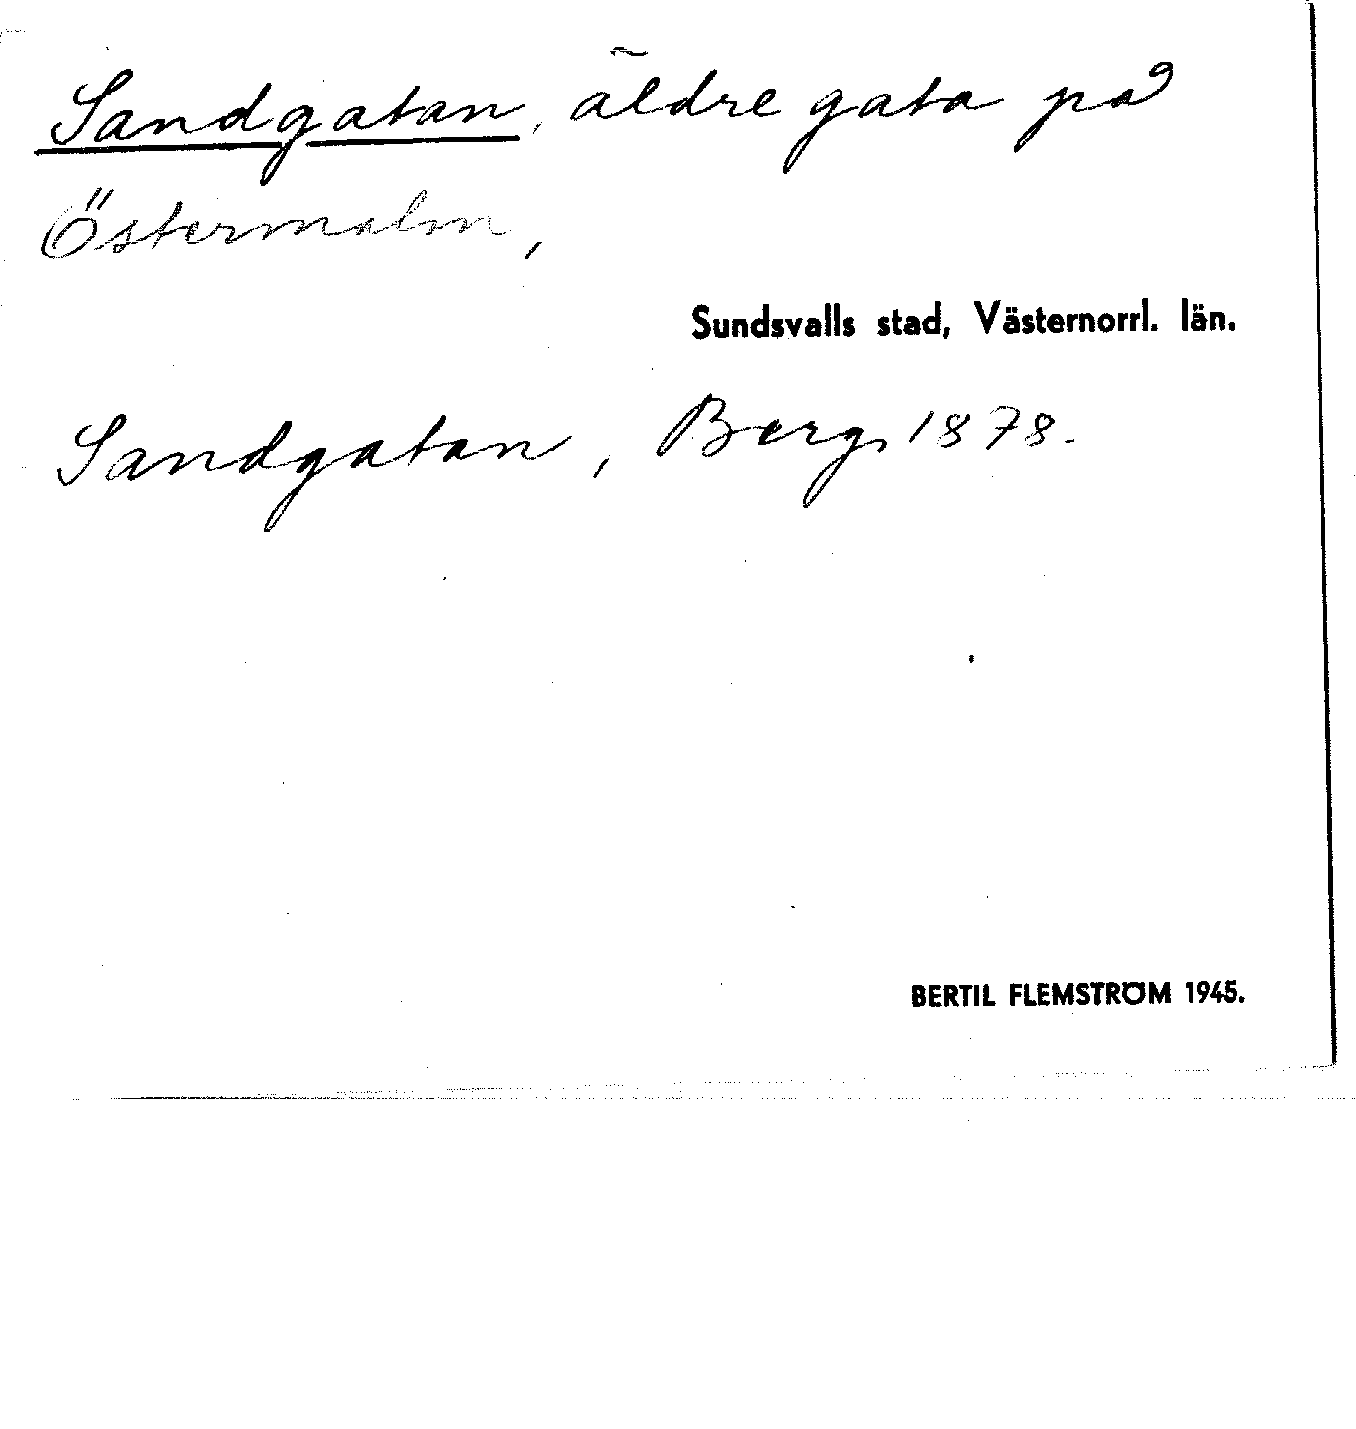 Sandgatan, äldre gata på
Östermalm,
Sundsvalls stad, Västernorrl. län.
Sandgatan, Berg, 1878.
BERTIL FLEMSTRÖM 1945.